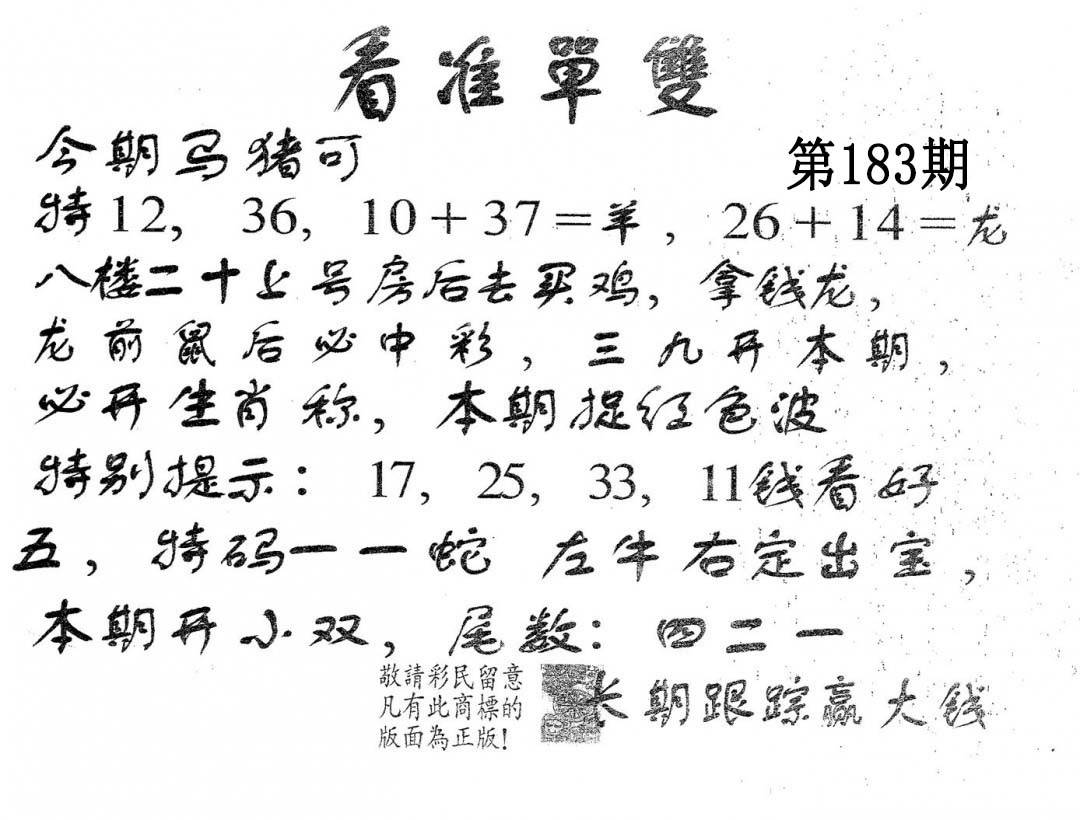 看准單雙
今期马猪可
第183期
特12, 36, 10+37=羊, 26+14=龙
八楼二十上号房后去买鸡, 拿钱龙,
龙前鼠后必中彩, 三九开本期,
必开生肖称, 本期捉红色波
特别提示: 17, 25, 33, 11钱看好
五, 特码一一蛇 左牛右定出宝,
本期开小双, 尾数: 四二一
敬請彩民留意
凡有此商標的
版面為正版!
长期跟踪赢大钱